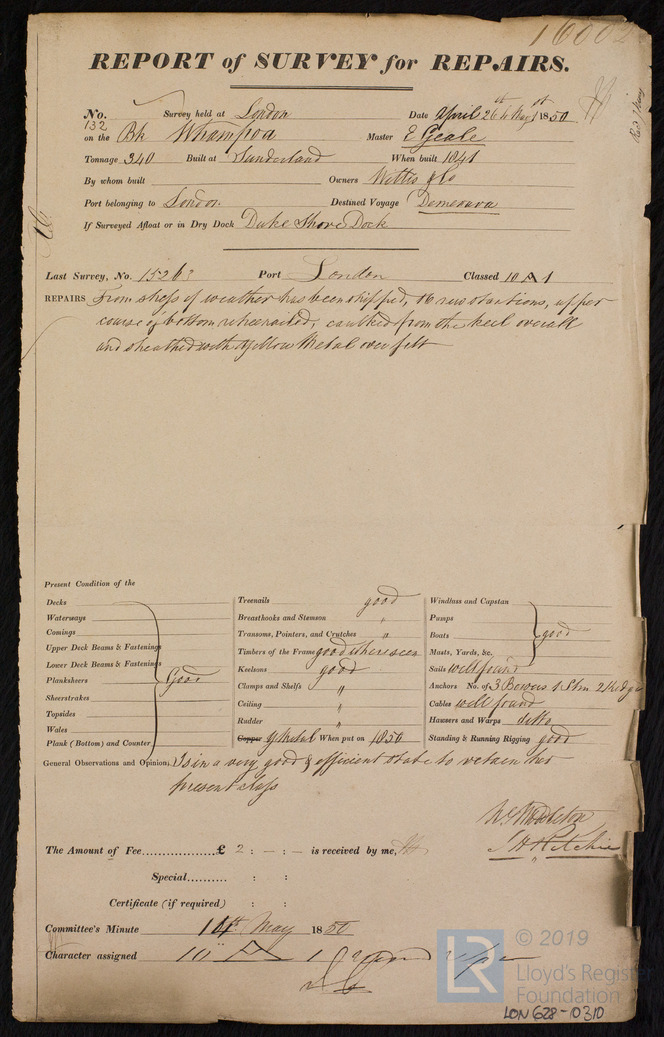 16002
REPORT of SURVEY for REPAIRS.
No. 132 Survey held at London Date April 26th & May 1st 1850
on the Bk Whampoa Master E Geale
Tonnage 340 Built at Sunderland When built 1841
By whom built Owners & Co
Port belonging to London Destined Voyage Demerara
If Surveyed Afloat or in Dry Dock Duke Shore Dock
Last Survey, No. 15263 Port London Classed 10 A 1
REPAIRS From stress of weather has been stripped, 16 new stantions, upper
course of bottom retreenailed, caulked from the keel overall
and sheathed with Yellow Metal over felt
Present Condition of the
Decks
Waterways
Comings
Upper Deck Beams & Fastenings
Lower Deck Beams & Fastenings
Planksheers Good
Sheerstrakes
Topsides
Wales
Plank (Bottom) and Counter
Treenails good
Breasthooks and Stemson "
Transoms, Pointers, and Crutches "
Timbers of the Frame good where seen
Keelsons good
Clamps and Shelfs "
Ceiling "
Rudder "
Copper Y Metal When put on 1850
Windlass and Capstan
Pumps
Boats good
Masts, Yards, &c.
Sails well found
Anchors No. of 3 Bowers 1 Strm 2 Kedge
Cables well found
Hawsers and Warps ditto
Standing & Running Rigging good
General Observations and Opinion, Is in a very good & efficient state to retain her
present class
Wm Middleton
J H Ritchie
The Amount of Fee £ 2 : - : - is received by me,
Special : :
Certificate (if required) : :
Committee's Minute 14th May 1850
Character assigned 10 A 1
LR
© 2019
Lloyd's Register
Foundation
LON 628-0310